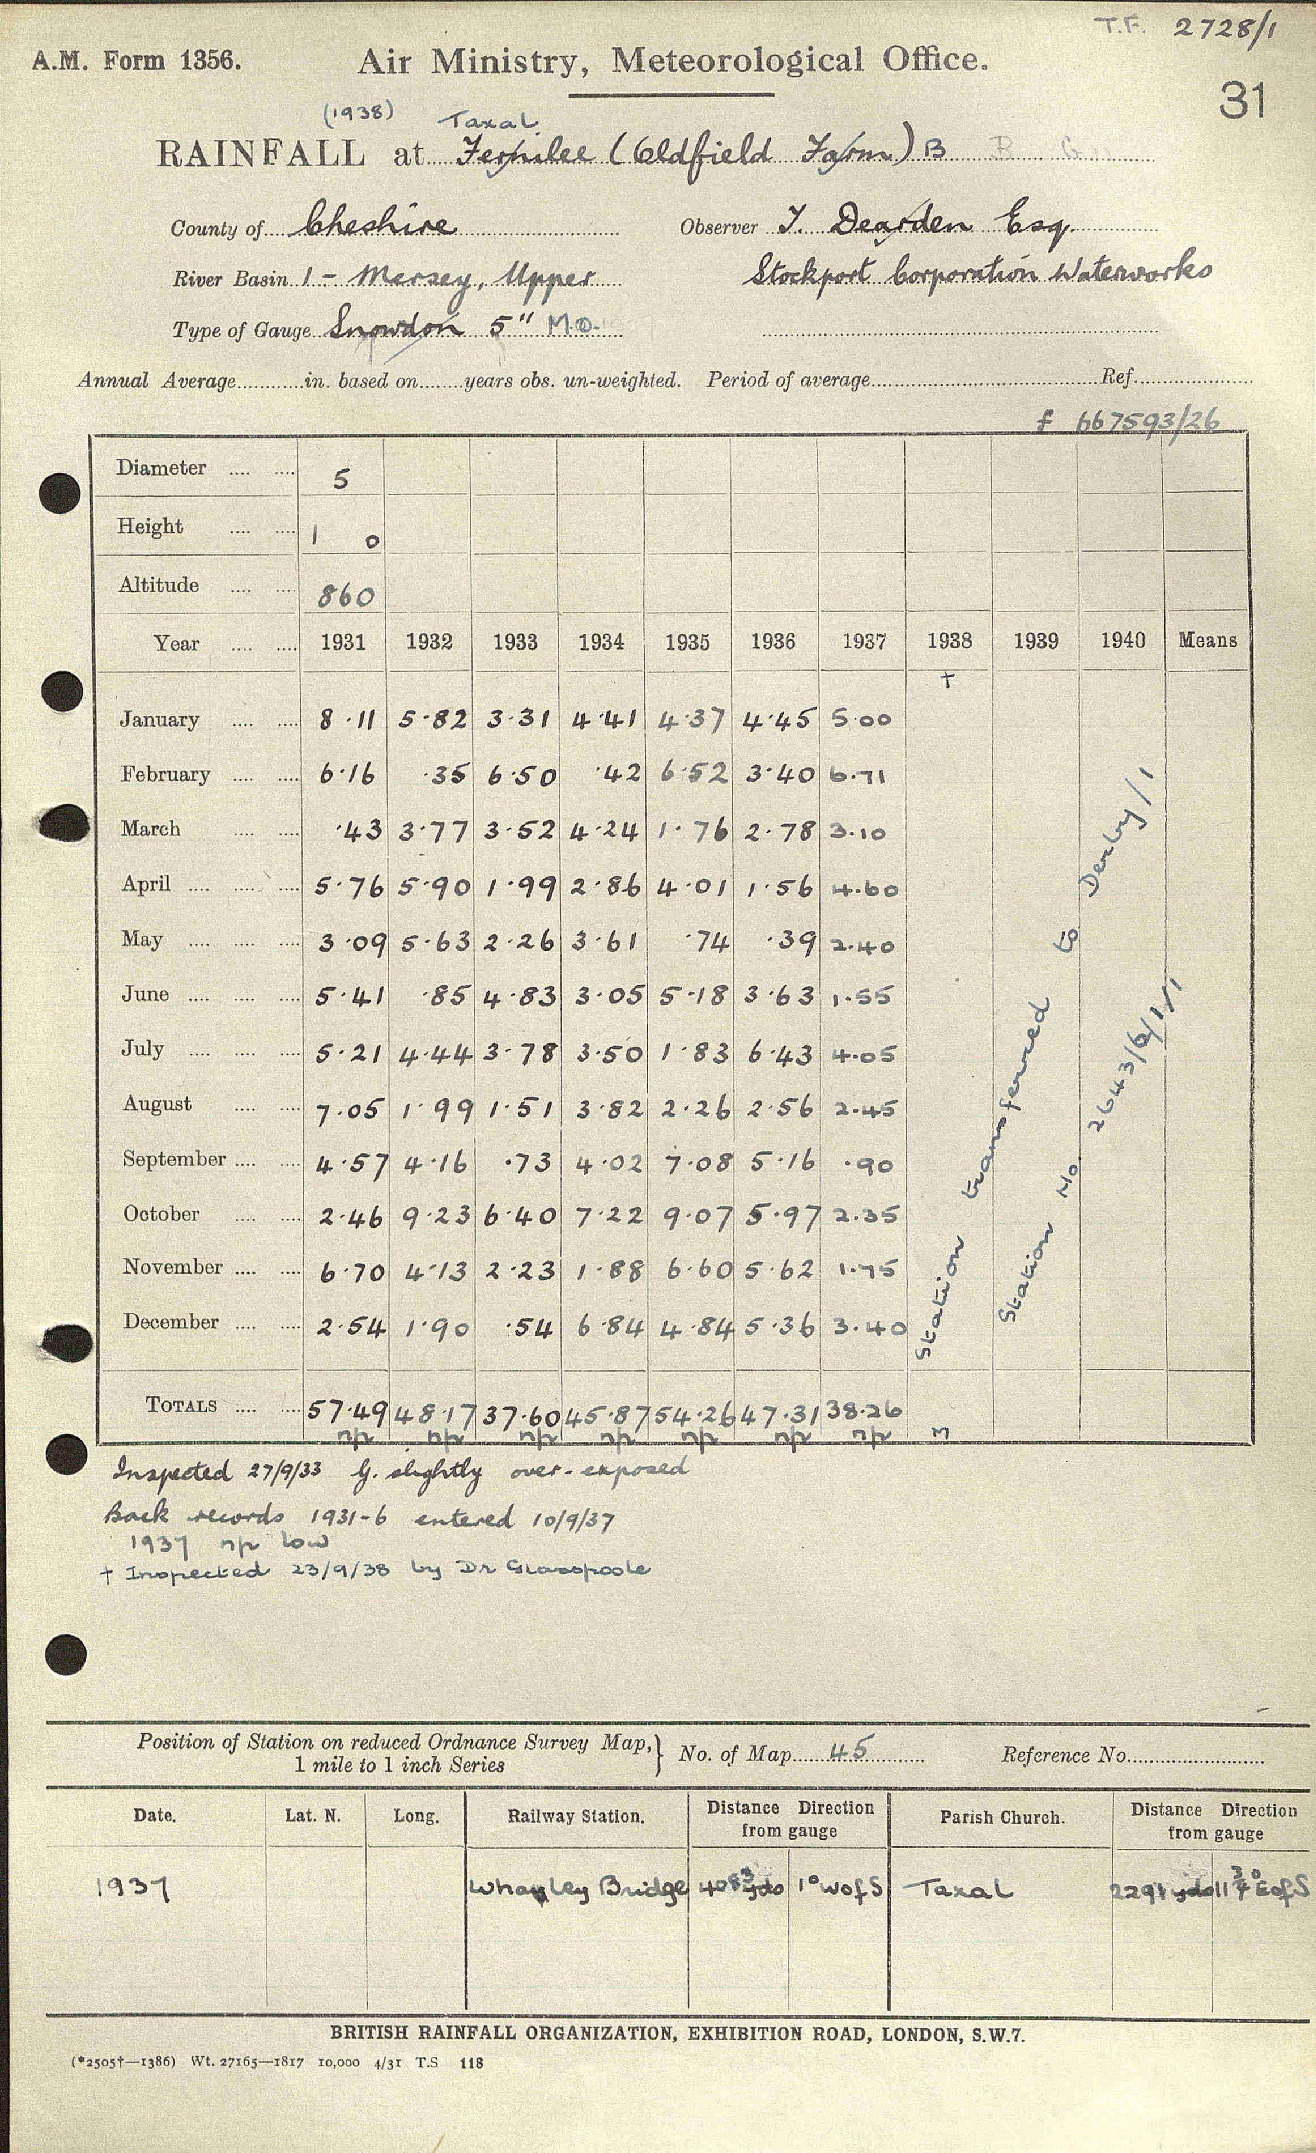 T.F. 2728/1
A.M. Form 1356. Air Ministry, Meteorological Office.
31
(1938) Taxal
RAINFALL at Fernilee (Oldfield Farm) B B G
County of Cheshire Observer T. Dearden Esq.
River Basin 1 - Mersey, Upper Stockport Corporation Waterworks
Type of Gauge Snowdon 5" M.O.
Annual Average in. based on years obs. un-weighted. Period of average Ref.
f 667593/26
Diameter 5
Height 1 0
Altitude 860
Year 1931 1932 1933 1934 1935 1936 1937 1938 1939 1940 Means
†
January 8·11 5·82 3·31 4·41 4·37 4·45 5·00
February 6·16 ·35 6·50 ·42 6·52 3·40 6·71
March ·43 3·77 3·52 4·24 1·76 2·78 3·10
April 5·76 5·90 1·99 2·86 4·01 1·56 4·60
May 3·09 5·63 2·26 3·61 ·74 ·39 2·40
June 5·41 ·85 4·83 3·05 5·18 3·63 1·55
July 5·21 4·44 3·78 3·50 1·83 6·43 4·05
August 7·05 1·99 1·51 3·82 2·26 2·56 2·45
September 4·57 4·16 ·73 4·02 7·08 5·16 ·90
October 2·46 9·23 6·40 7·22 9·07 5·97 2·35
November 6·70 4·13 2·23 1·88 6·60 5·62 1·75
December 2·54 1·90 ·54 6·84 4·84 5·36 3·40
Station transferred to Derby/1
Station No. 2643/6/1/1
TOTALS 57·49 48·17 37·60 45·87 54·26 47·31 38·26
np np np np np np np m
Inspected 27/9/33 G. slightly over-exposed
Back records 1931-6 entered 10/9/37
1937 np low
† Inspected 23/9/38 by Dr Glasspoole
Position of Station on reduced Ordnance Survey Map, 1 mile to 1 inch Series } No. of Map 45 Reference No.
Date. Lat. N. Long. Railway Station. Distance Direction from gauge Parish Church. Distance Direction from gauge
1937 Whaley Bridge 4083 yds 1° W of S Taxal 2291 yds 11¾° E of S
BRITISH RAINFALL ORGANIZATION, EXHIBITION ROAD, LONDON, S.W.7.
(*2505†—1386) Wt. 27165—1817 10,000 4/31 T.S 118